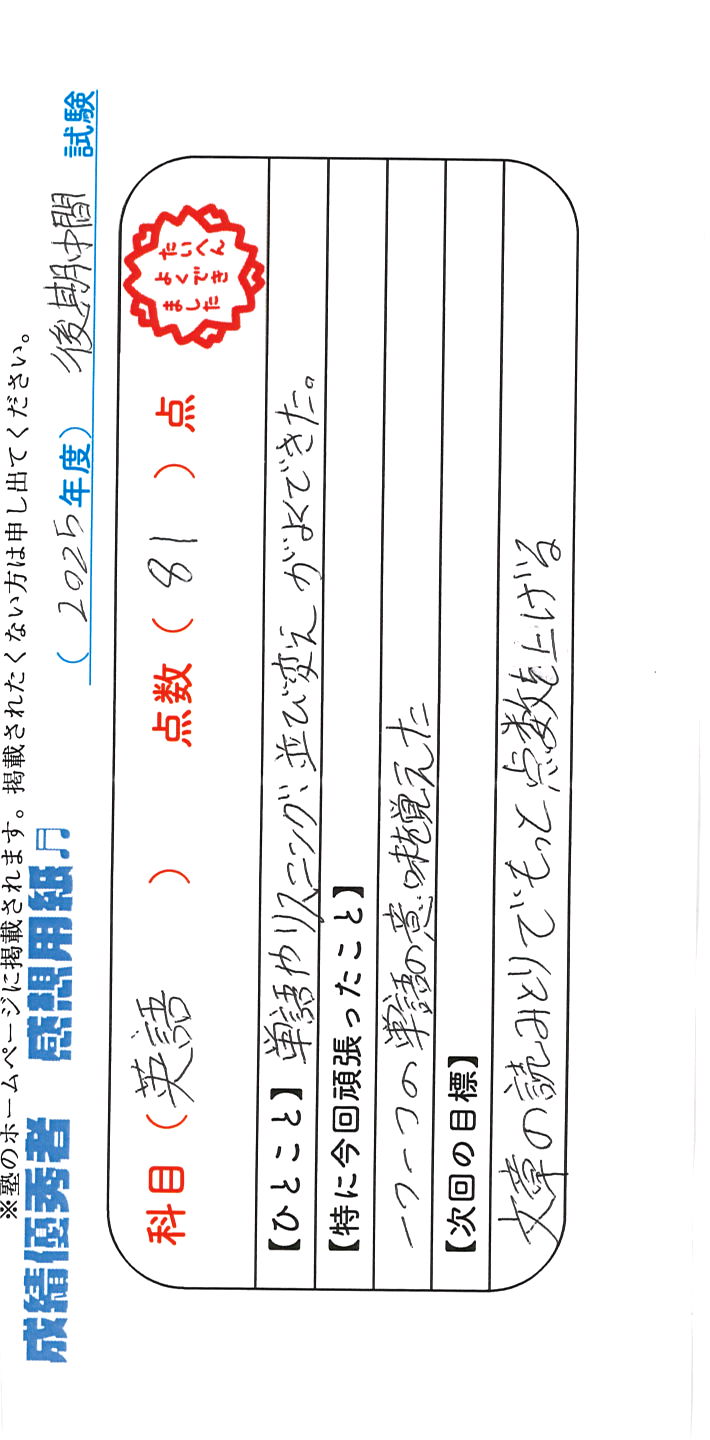 ※塾のホームページに掲載されます。掲載されたくない方は申し出てください。
成績優秀者 感想用紙♫
(2025年度) 後期中間 試験
科目(英語) 点数(81)点
たいへん
よくでき
ました
【ひとこと】単語やリスニング、並び変えがよくできた。
【特に今回頑張ったこと】
一つ一つの単語の意味を覚えた
【次回の目標】
文章の読みとりでもっと点数を上げる